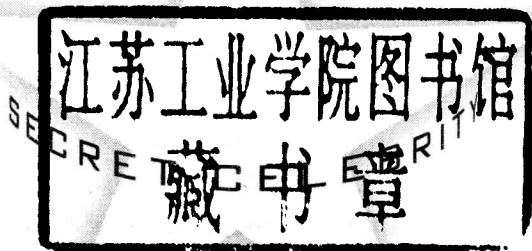 江苏工业学院图书馆
藏书章
SECRET CELEBRITY